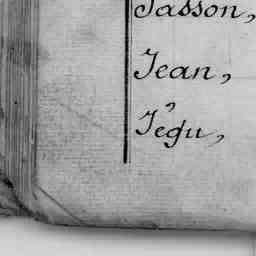 Jasson,
Jean,
Jégu,